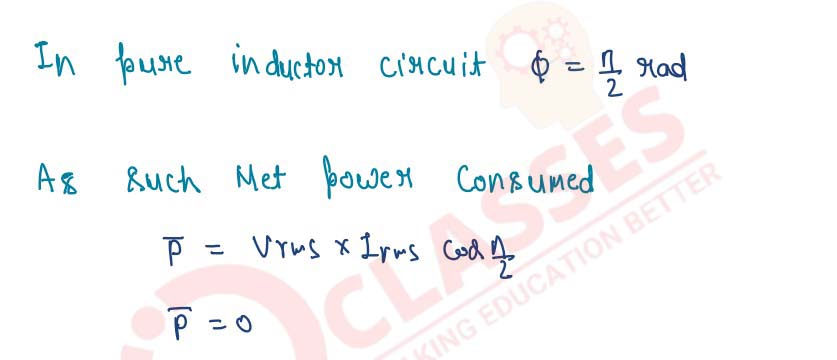 In pure inductor circuit φ = π/2 rad
As such Net power consumed
P̅ = Vrms × Irms cos π/2
P̅ = 0
CLASSES
MAKING EDUCATION BETTER